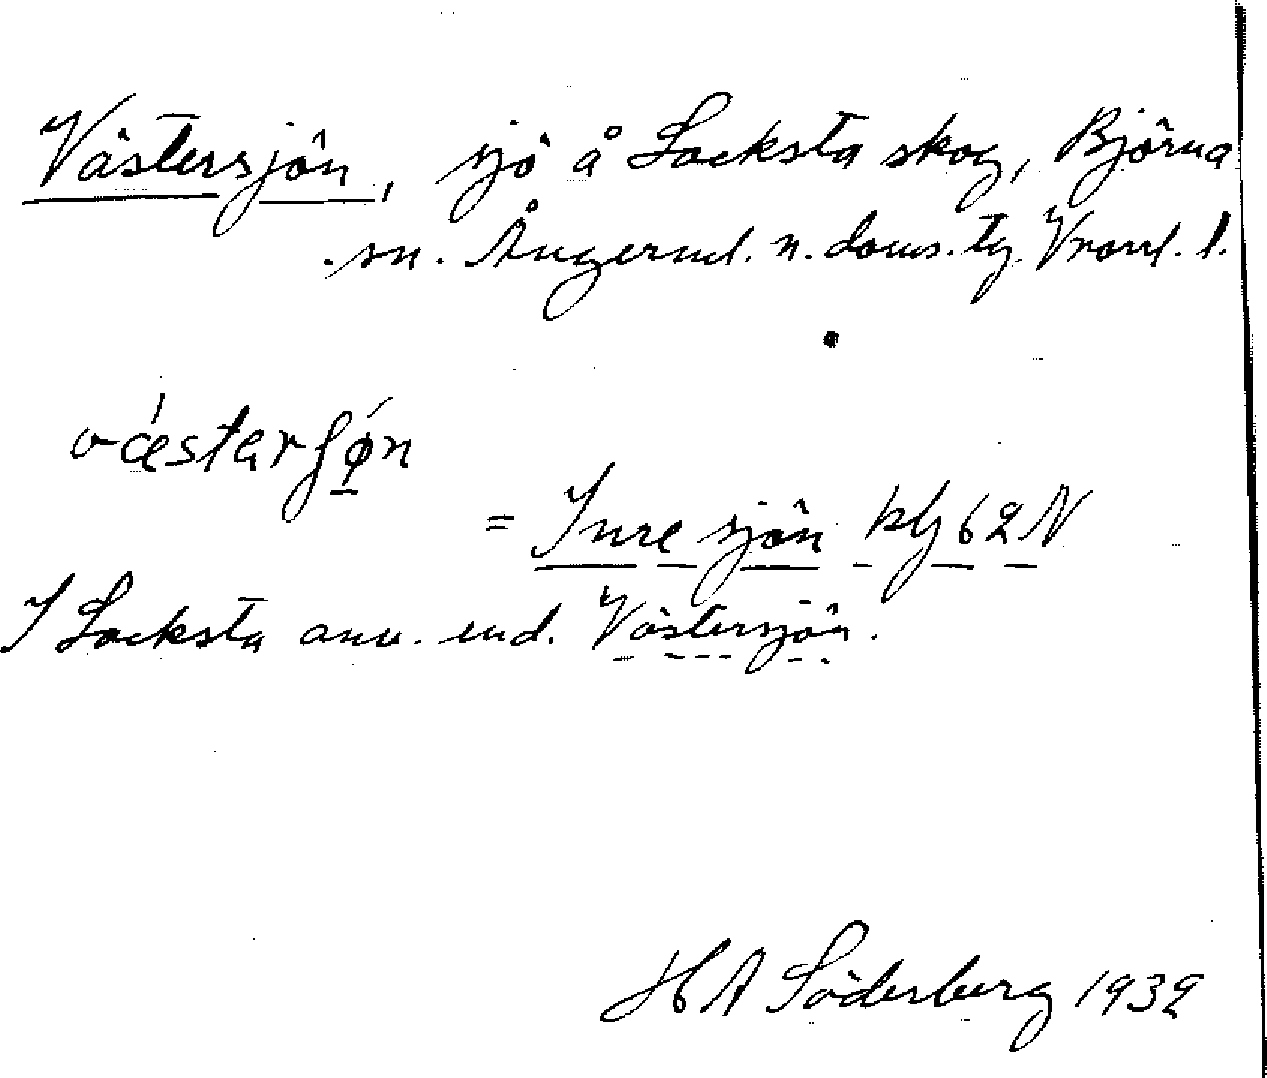 Västersjön, sjö å Locksta skog, Björna
sn. Ångerml. n. doms. tg. Vnorrl. l.
væ̀starʃǿn
= Inre sjön kbj 62 N
I Locksta anv. end. Västersjön.
H A Söderberg 1932